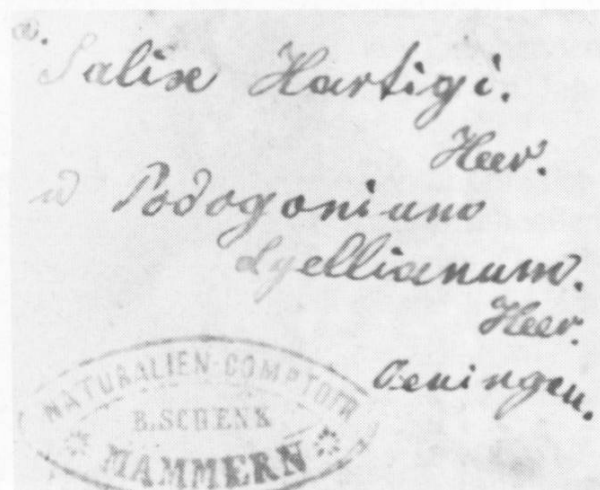 a. Salix Hartigi.
Heer.
Podogonium
Lyellianum.
Heer.
Oeningen.
NATURALIEN-COMPTOIR
B. SCHENK
MAMMERN